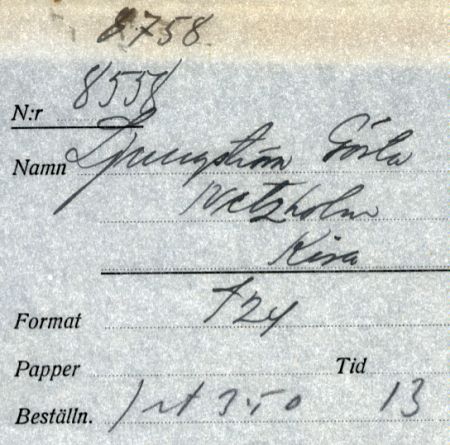 8758
N:r 8558
Namn Ljungström Gösta
Kisa
Format
Papper Tid
Beställn. 3.50 13